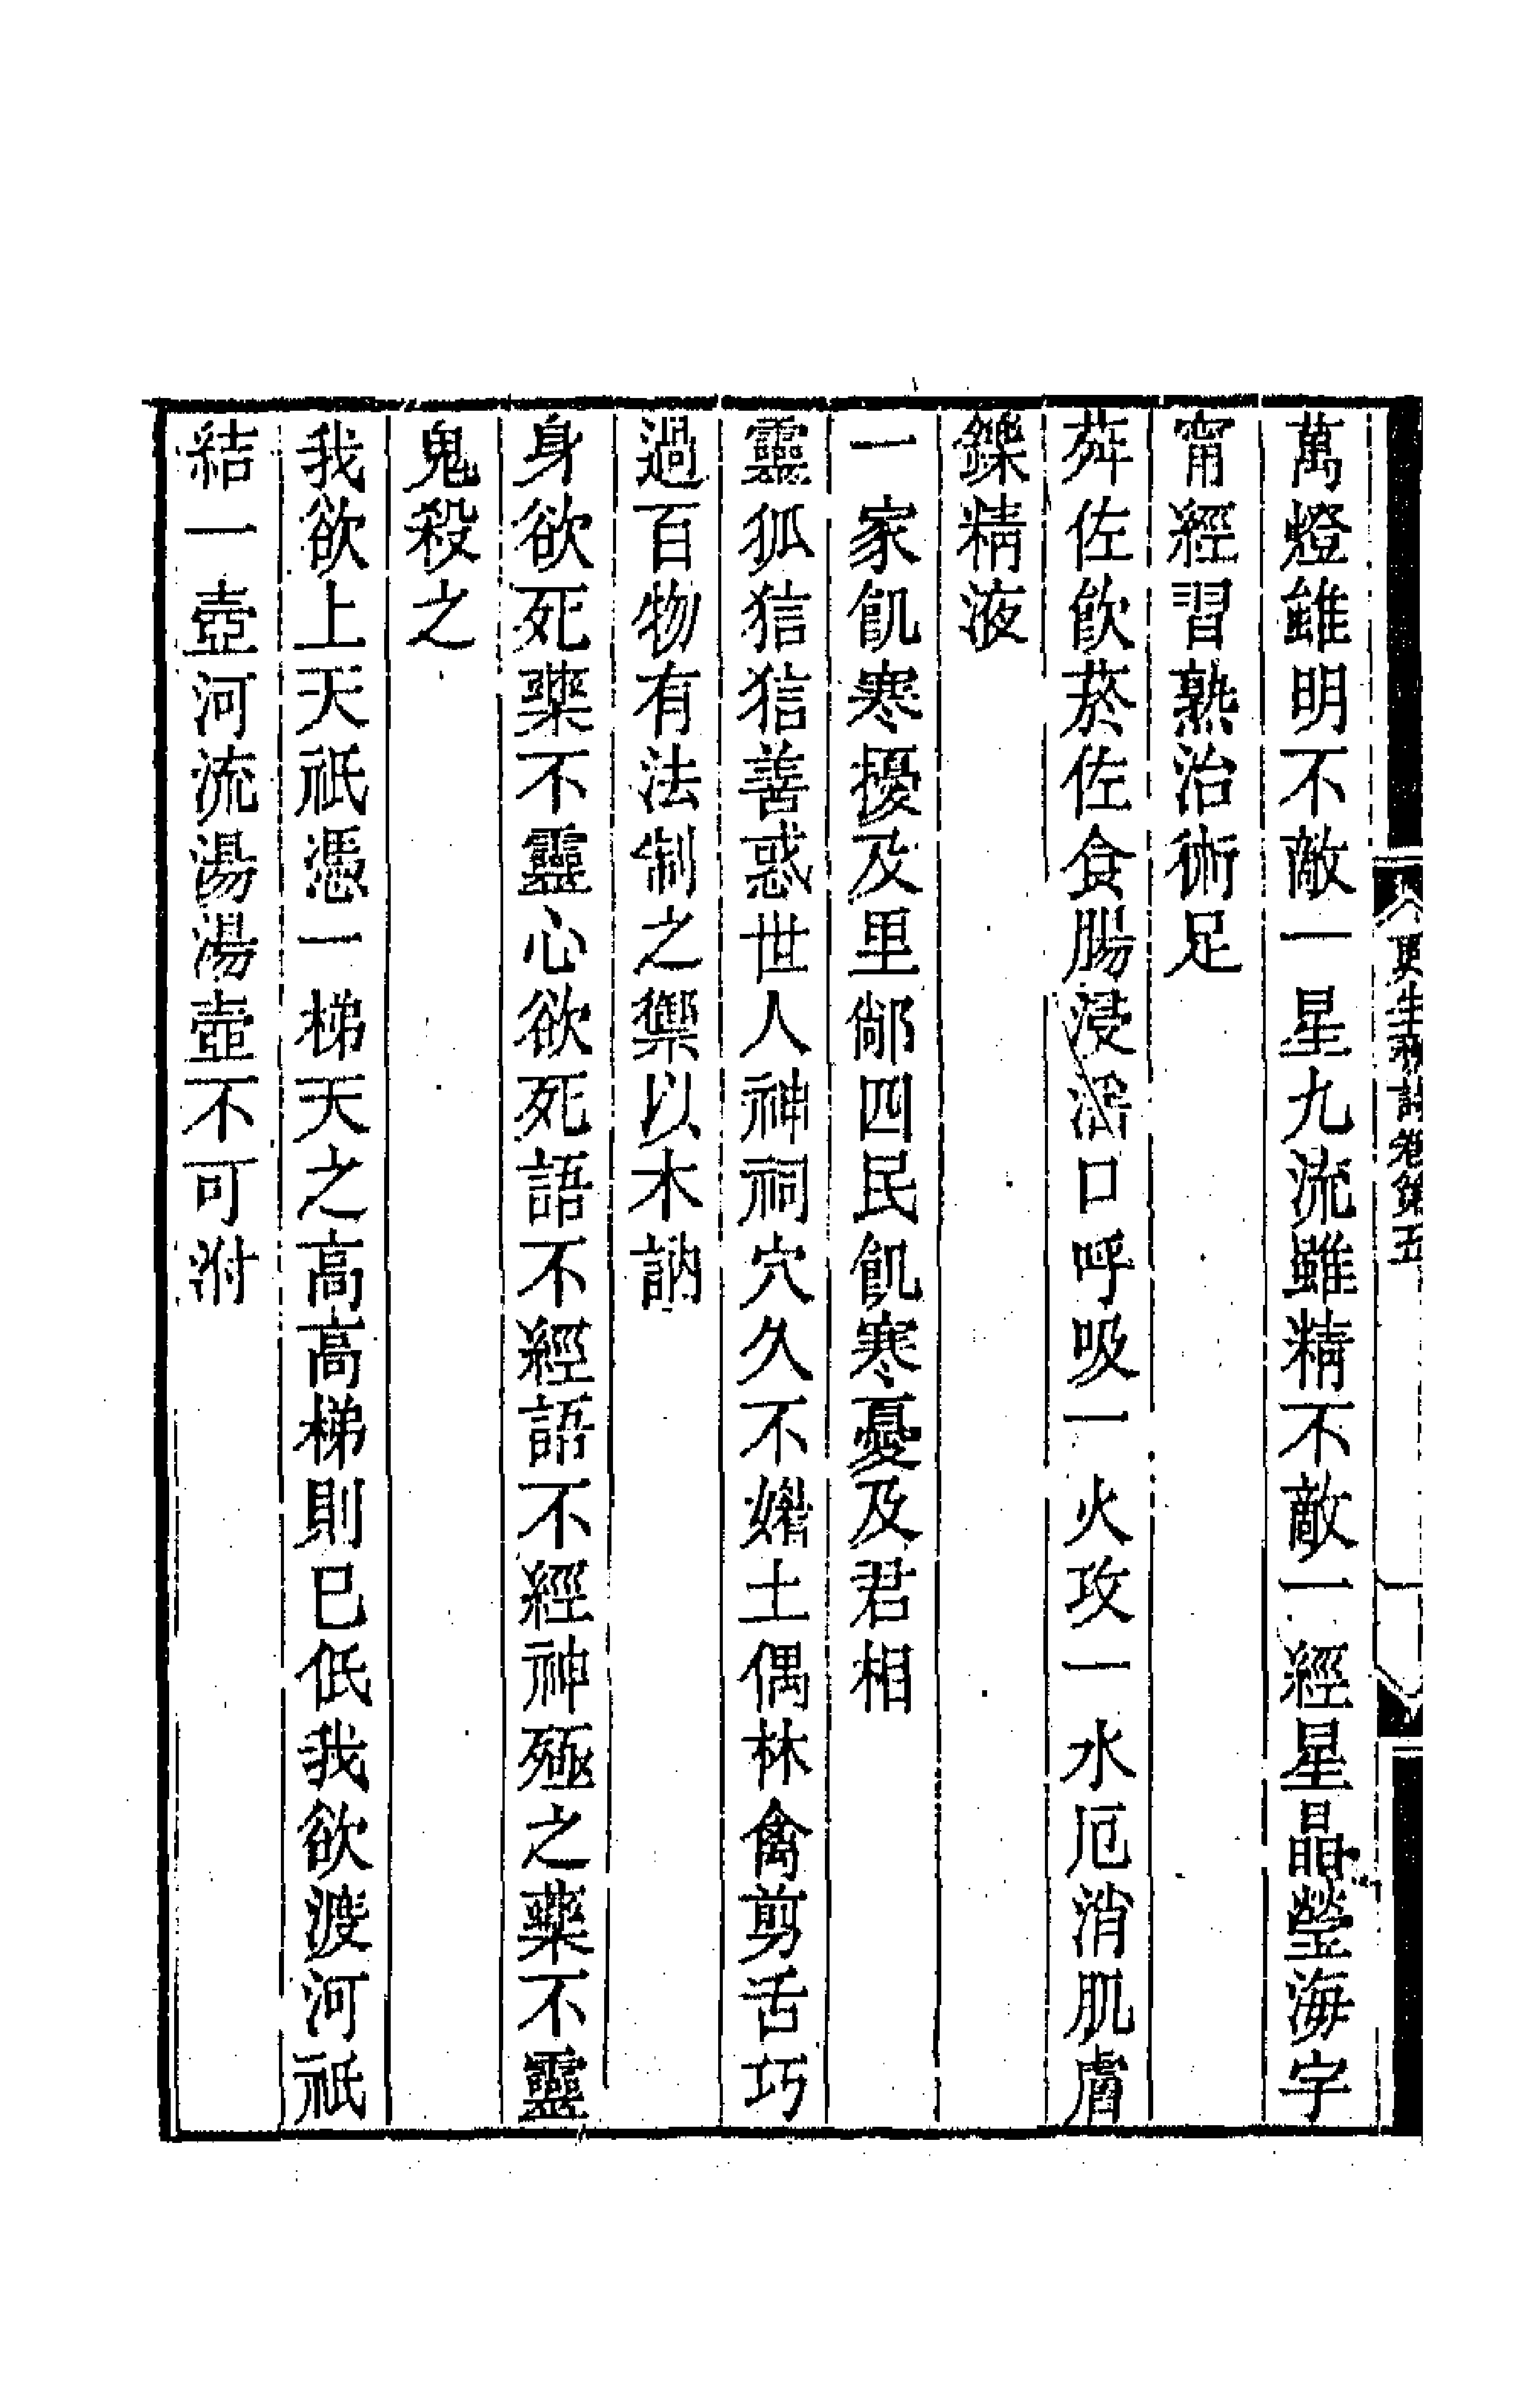 更生齋詩卷第五
萬燈雖明不敵一星九流雖精不敵一經星晶瑩海宇
甯經習熟治術足
荈佐飲菸佐食腸浸淫口呼吸一火攻一水厄消肌膚
鑠精液
一家飢寒擾及里鄰四民飢寒憂及君相
靈狐狺狺善惑世人神祠穴久不婚土偶林禽剪舌巧
過百物有法制之禦以木訥
身欲死藥不靈心欲死語不經語不經神殛之藥不靈
鬼殺之
我欲上天祇憑一梯天之高高梯則已低我欲渡河祇
結一壺河流湯湯壺不可泭